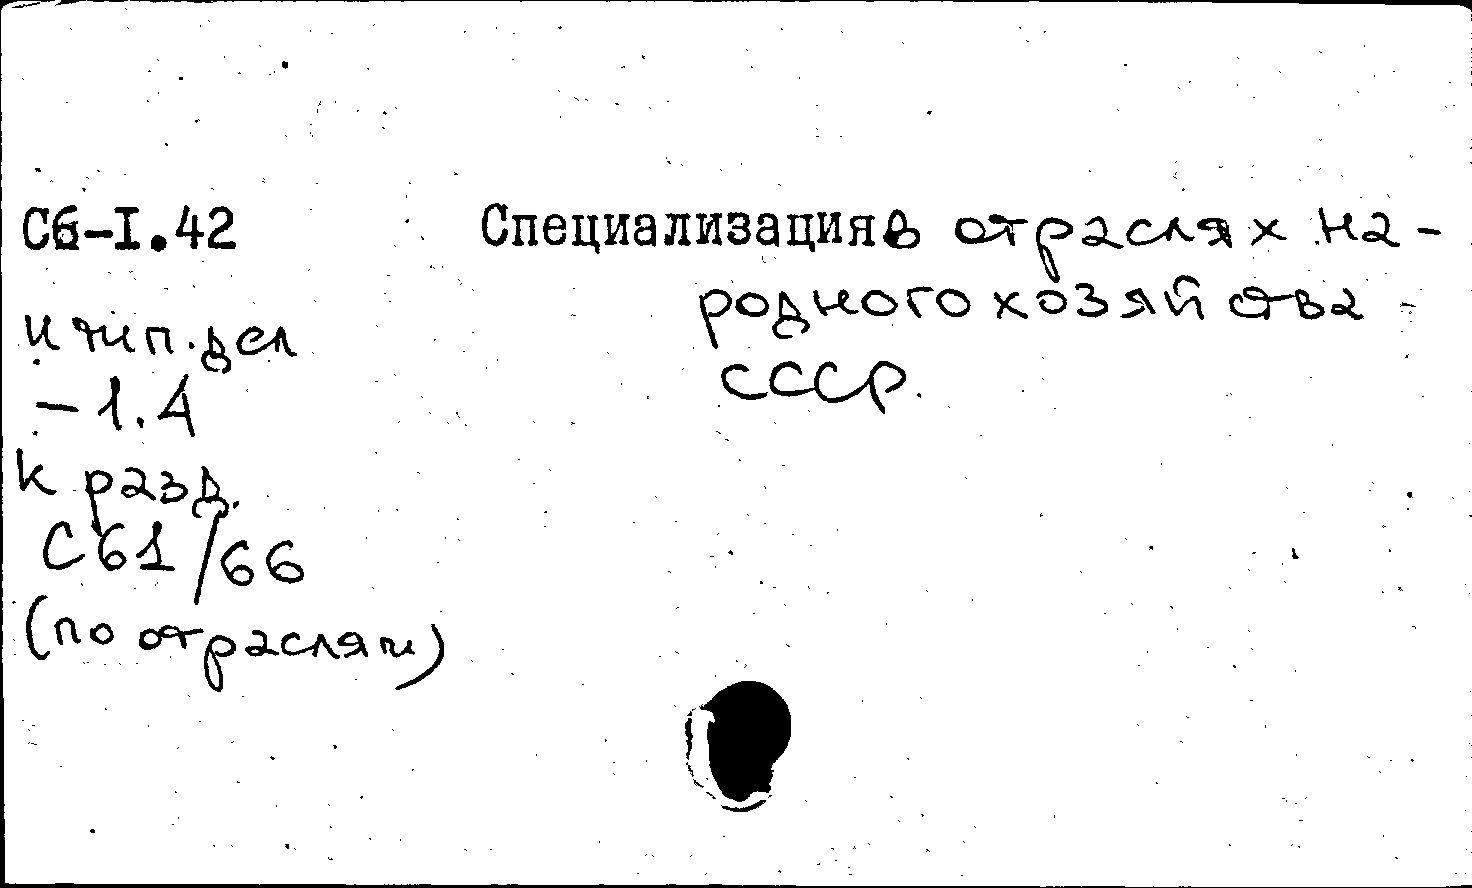 С6-I.42
и тип. дел
-1.4
к разд.
С61/66
(по отраслям)
Специализация в отраслях на-
родного хозяйства
СССР.